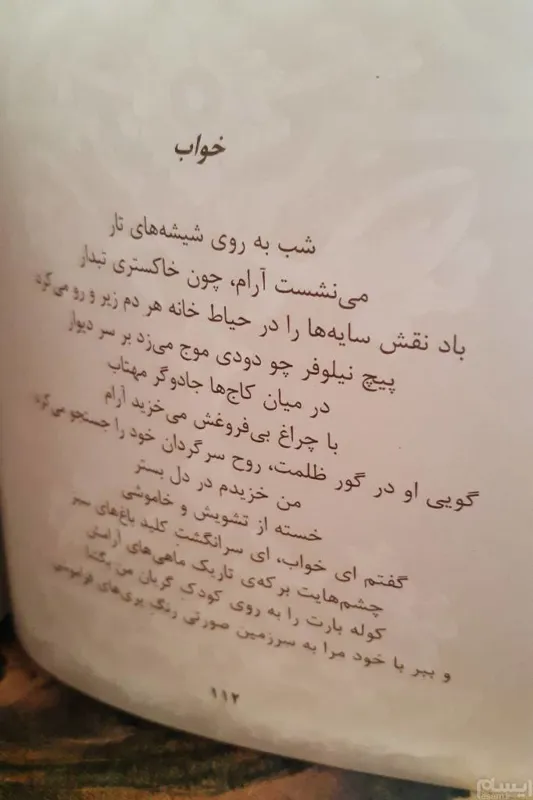 خواب
شب به روی شیشه‌های تار
می‌نشست آرام، چون خاکستری تبدار
باد نقش سایه‌ها را در حیاط خانه هر دم زیر و رو می‌کرد
پیچ نیلوفر چو دودی موج می‌زد بر سر دیوار
در میان کاج‌ها جادوگر مهتاب
با چراغ بی‌فروغش می‌خزید آرام
گویی او در گور ظلمت، روح سرگردان خود را جستجو می‌کرد
من خزیدم در دل بستر
خسته از تشویش و خاموشی
گفتم ای خواب، ای سرانگشتِ کلید باغ‌های سبز
چشم‌هایت برکه‌ی تاریک ماهی‌های آرامش
کوله بارت را به روی کودکِ گریان من بگشا
و ببر با خود مرا به سرزمین صورتی رنگِ پری‌های فراموشی
۱۱۲
ایسام